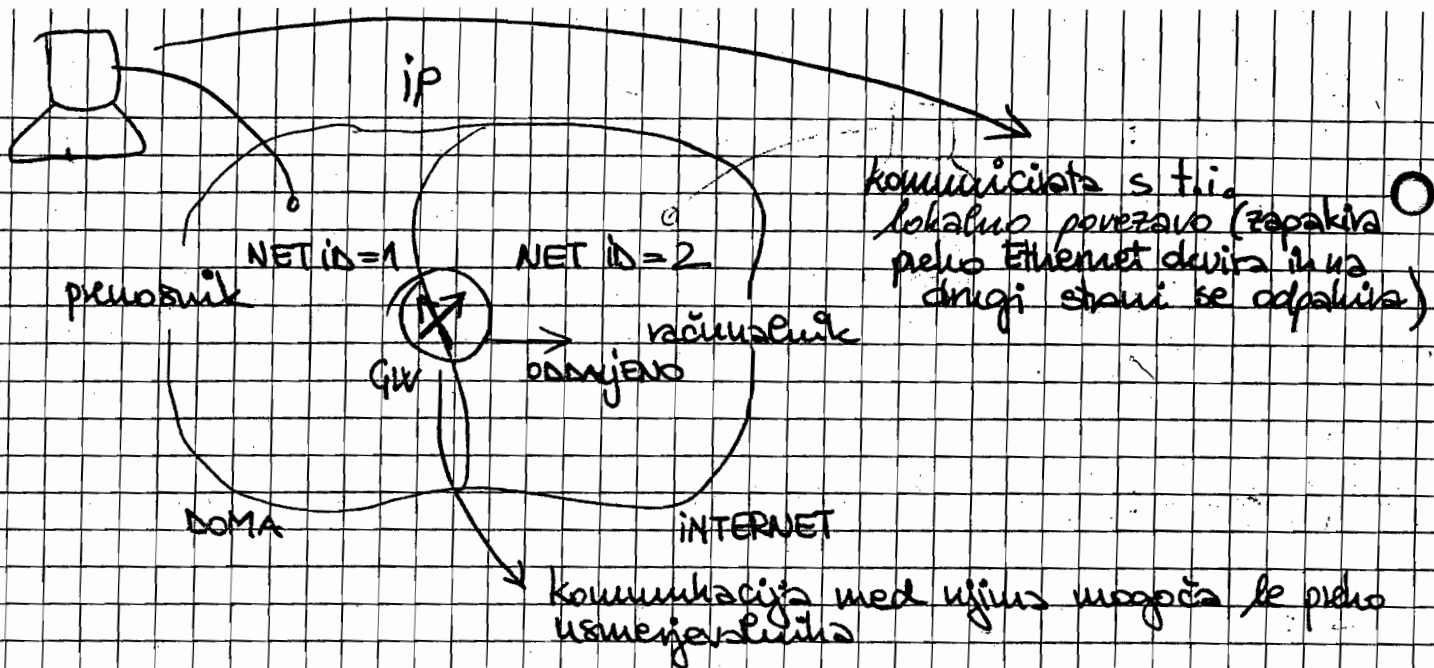 iP
komunicirata s t.i.
lokalno povezavo (zapakira
preko Ethernet okvira in na
drugi strani se odpakira)
NET iD=1
NET iD=2
prenosnik
računalnik
GW
ODDAJENO
DOMA
iNTERNET
komunikacija med njima mogoča le preko
usmerjevalnika